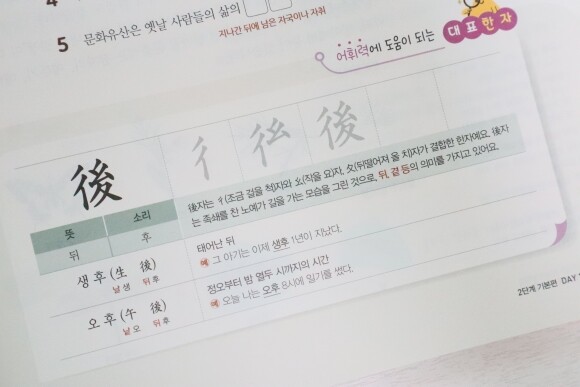 5 문화유산은 옛날 사람들의 삶의
지나간 뒤에 남은 자국이나 자취
어휘력에 도움이 되는 대표한자
後 彳 後
後자는 彳(조금 걸을 척)자와 幺(작을 요)자, 夂(뒤떨어져 올 치)자가 결합한 한자예요. 後자
는 족쇄를 찬 노예가 길을 가는 모습을 그린 것으로, 뒤, 곁 등의 의미를 가지고 있어요.
뜻 소리
뒤 후
생 후 (生 後)
날 생 뒤 후
태어난 뒤
예 그 아기는 이제 생후 1년이 지났다.
오 후 (午 後)
낮 오 뒤 후
정오부터 밤 열두 시까지의 시간
예 오늘 나는 오후 8시에 일기를 썼다.
2단계 기본편 DAY